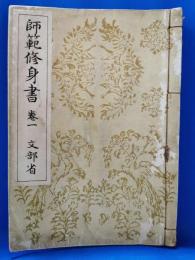 師範修身書 巻一 文部省